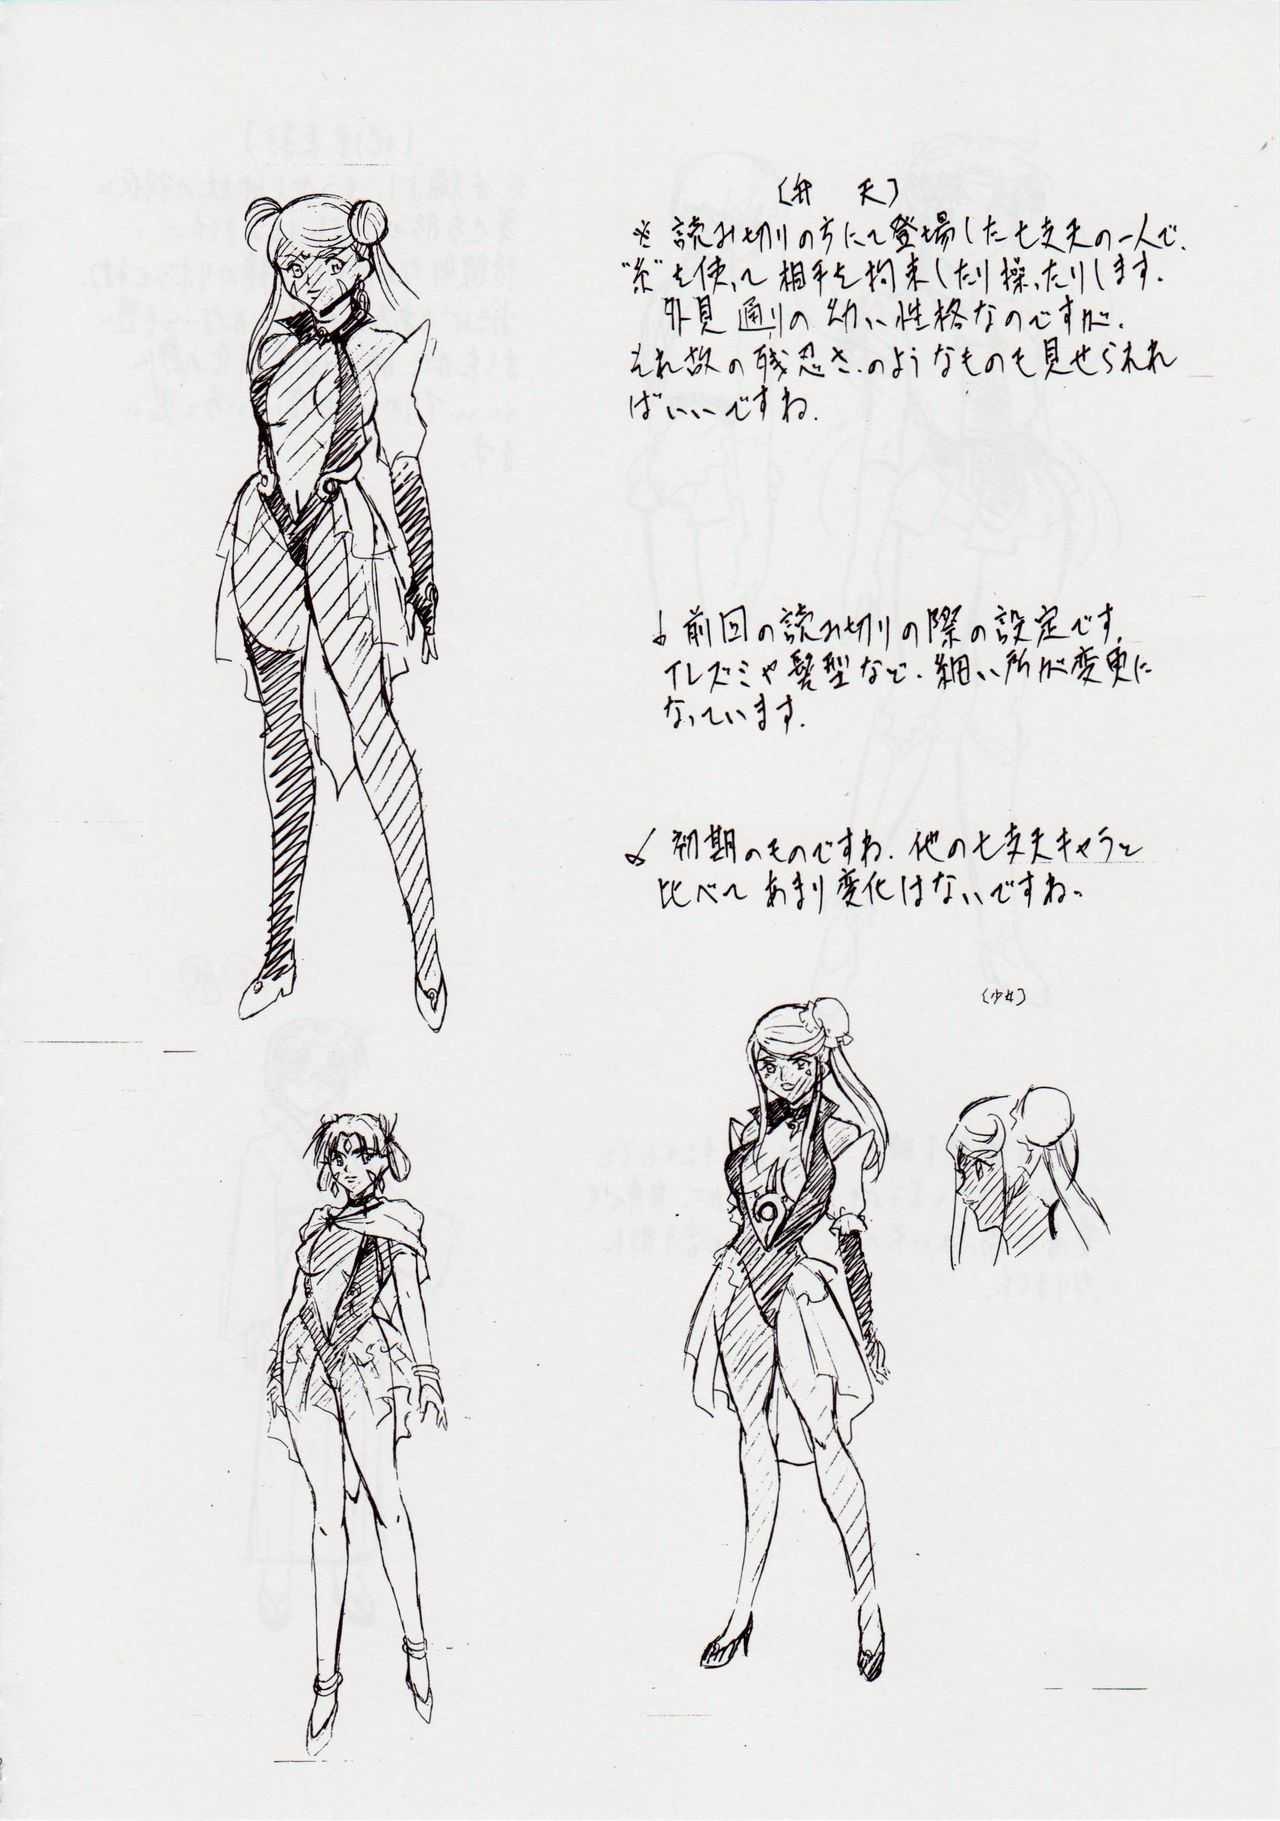 〔弁　天〕
※読み切りの方にて登場した七支天の一人で、
"糸"を使って相手を拘束したり操ったりします。
外見通りの幼い性格なのですが、
それ故の残忍さ、のようなものも見せられれ
ばいいですね。
前回の読み切りの際の設定です。
イレズミや髪型など、細い所が変更に
なっています。
初期のものですね。他の七支天キャラと
比べて あまり変化はないですね。
〔少女〕